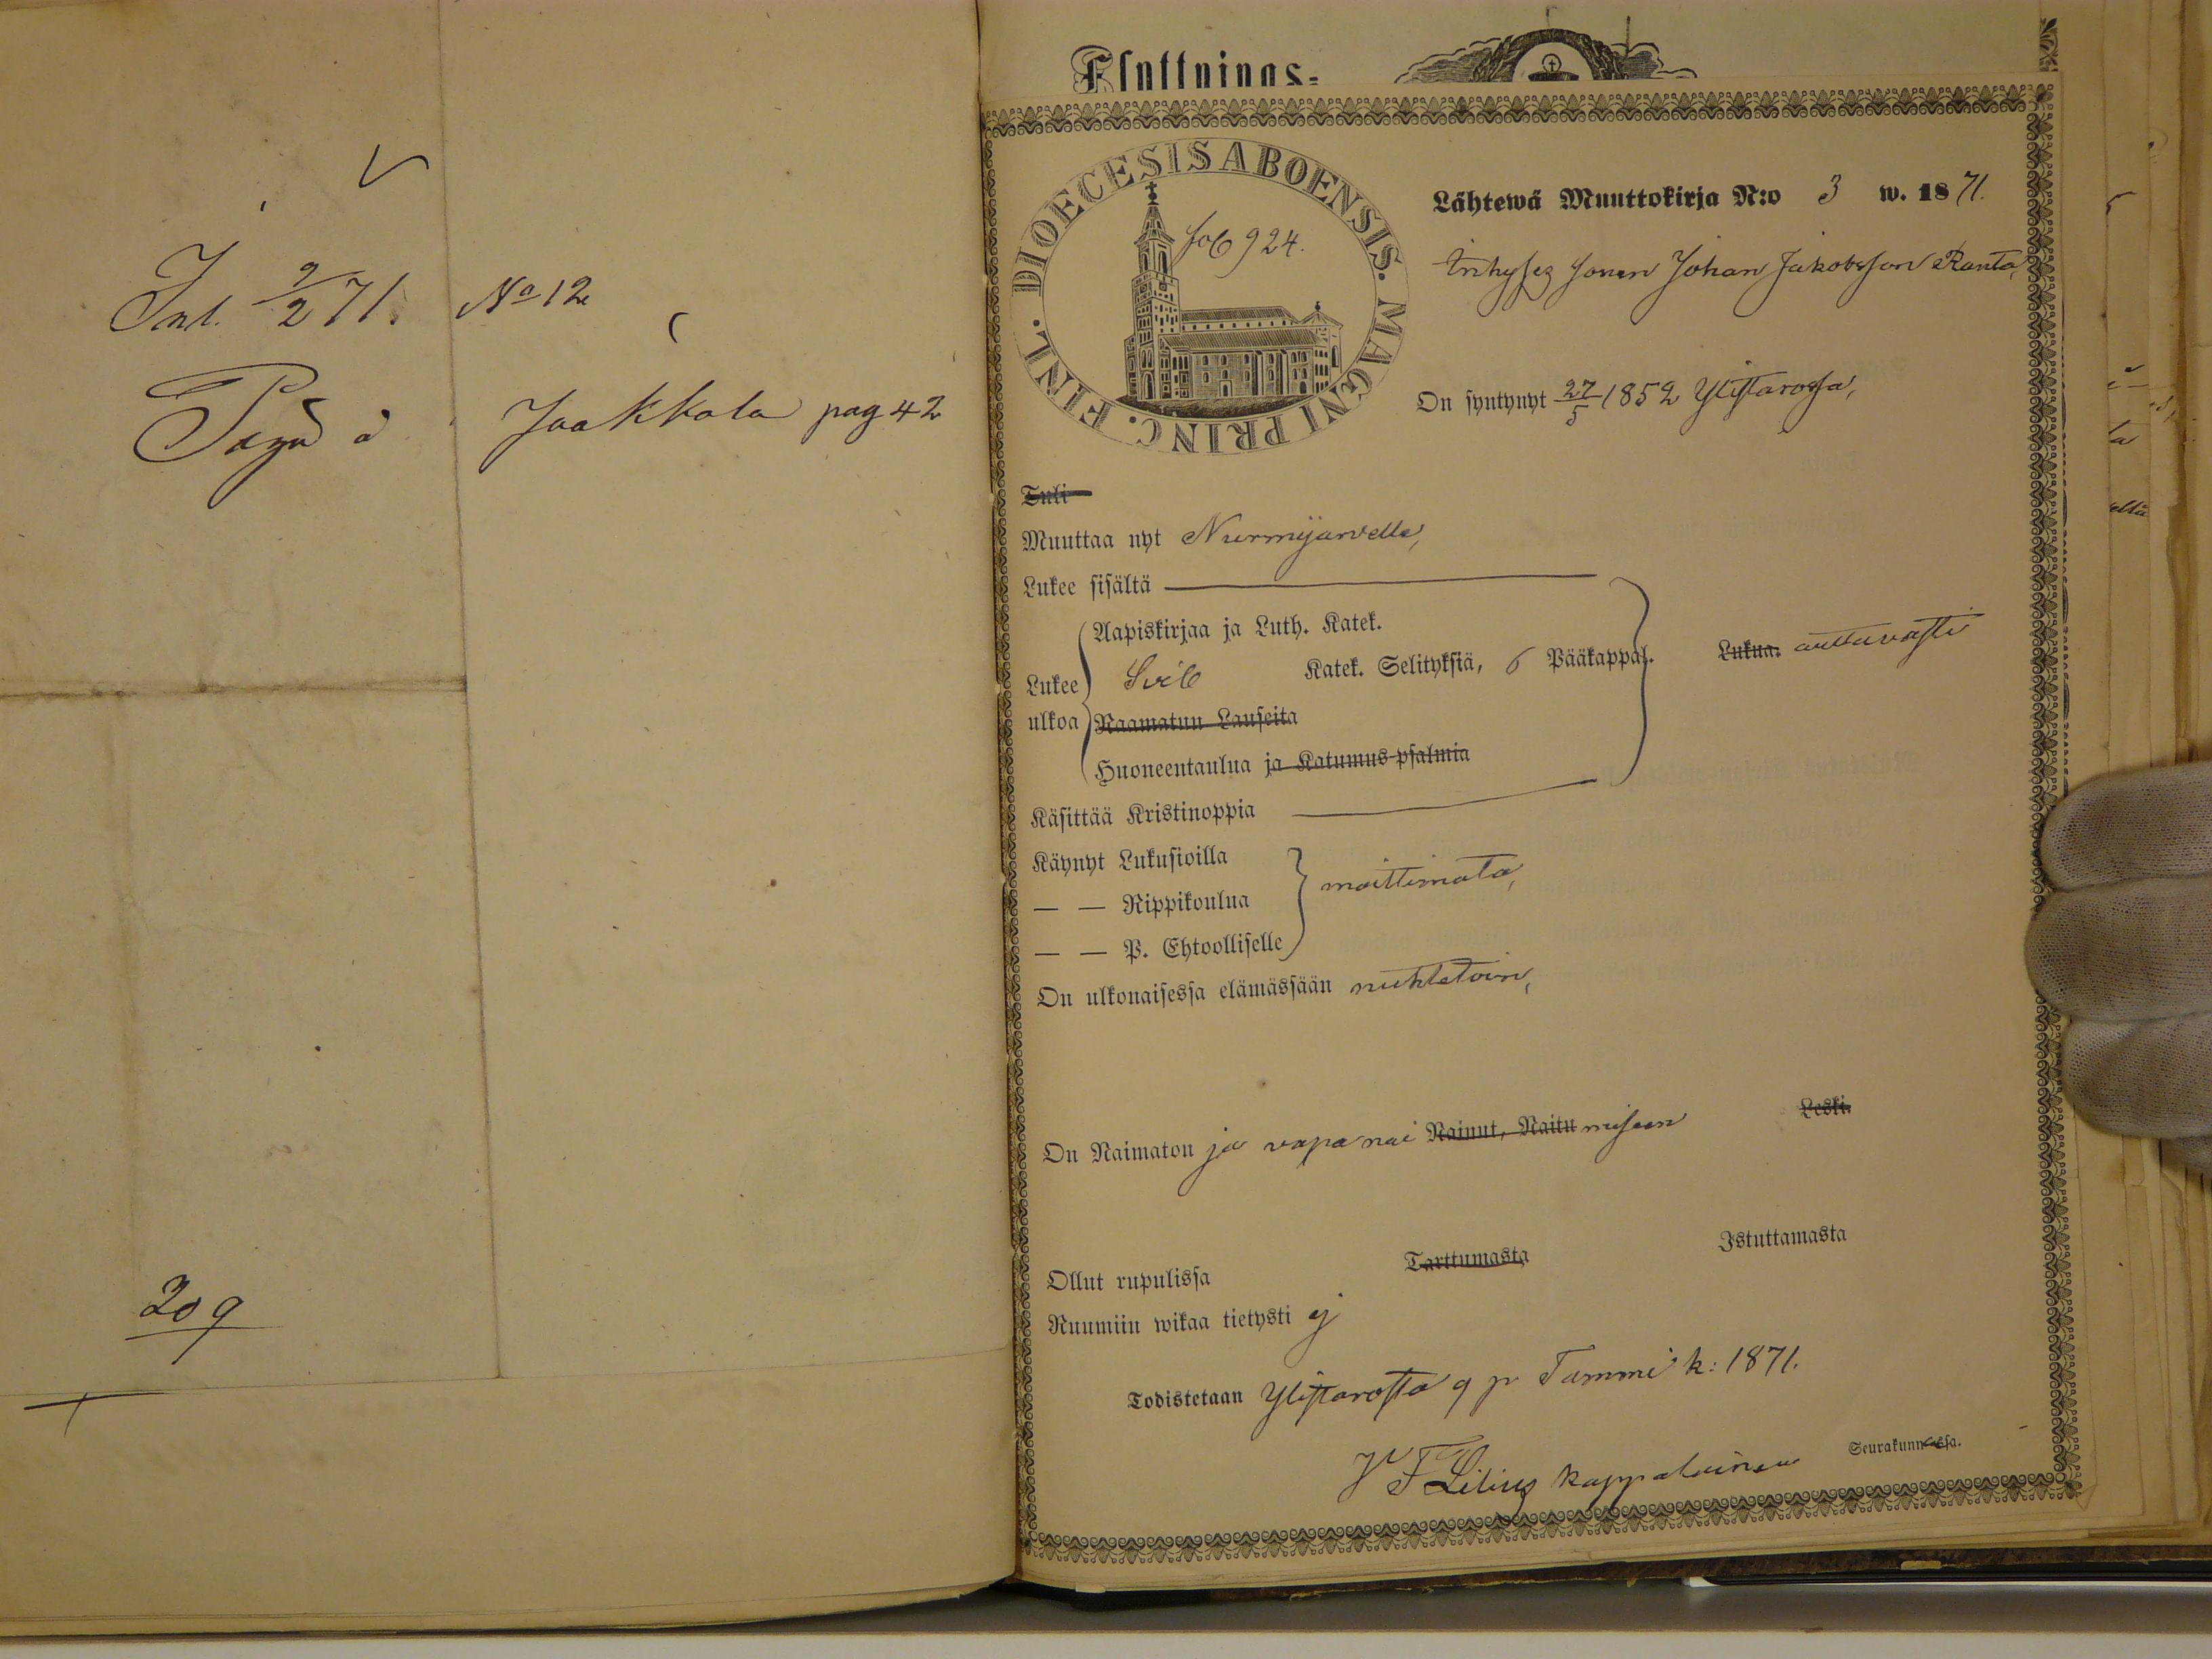 Inl. 9/2 71. No 12
Jaakkola pag 42
209
Flyttnings-
DIOECESIS ABOENSIS. MAGNI PRINC. FINL.
fol 924.
Lähtewä Muuttokirja N:o 3 w. 1871.
Inhyses sonen Johan Jakobsson Ranta,
On syntynyt 27/5 1852 Ylistarossa,
Tuli
Muuttaa nyt Nurmijärvelle,
Lukee sisältä
Aapiskirjaa ja Luth. Katek.
Lukee ulkoa Svib Katek. Selityksiä, 6 Pääkappal. Lukua. auttavasti
Raamatun Lauseita
Huoneentaulua ja Katumus-psalmia
Käsittää Kristinoppia
Käynyt Lukusioilla
— — Rippikoulua moittimata,
— — P. Ehtoolliselle
On ulkonaisessa elämässään nuhtetoin,
Leski.
On Naimaton ja vapa nai Nainut, Naitu miseen
Ollut rupulissa Tarttumasta Istuttamasta
Ruumiin wikaa tietysti ej
Todistetaan Ylistarossa 9 p Tammi k: 1871.
Seurakunnassa.
Lilius kappalainen